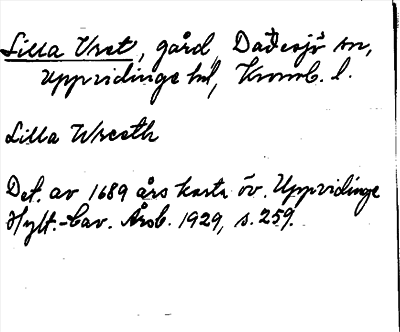 Lilla Vret, gård, Dädesjö sn,
Uppvidinge hd, Kronob. l.
Lilla Wreeth
Det. av 1689 års karta öv. Uppvidinge
Hylt.-Cav. Årsb. 1929, s. 259.